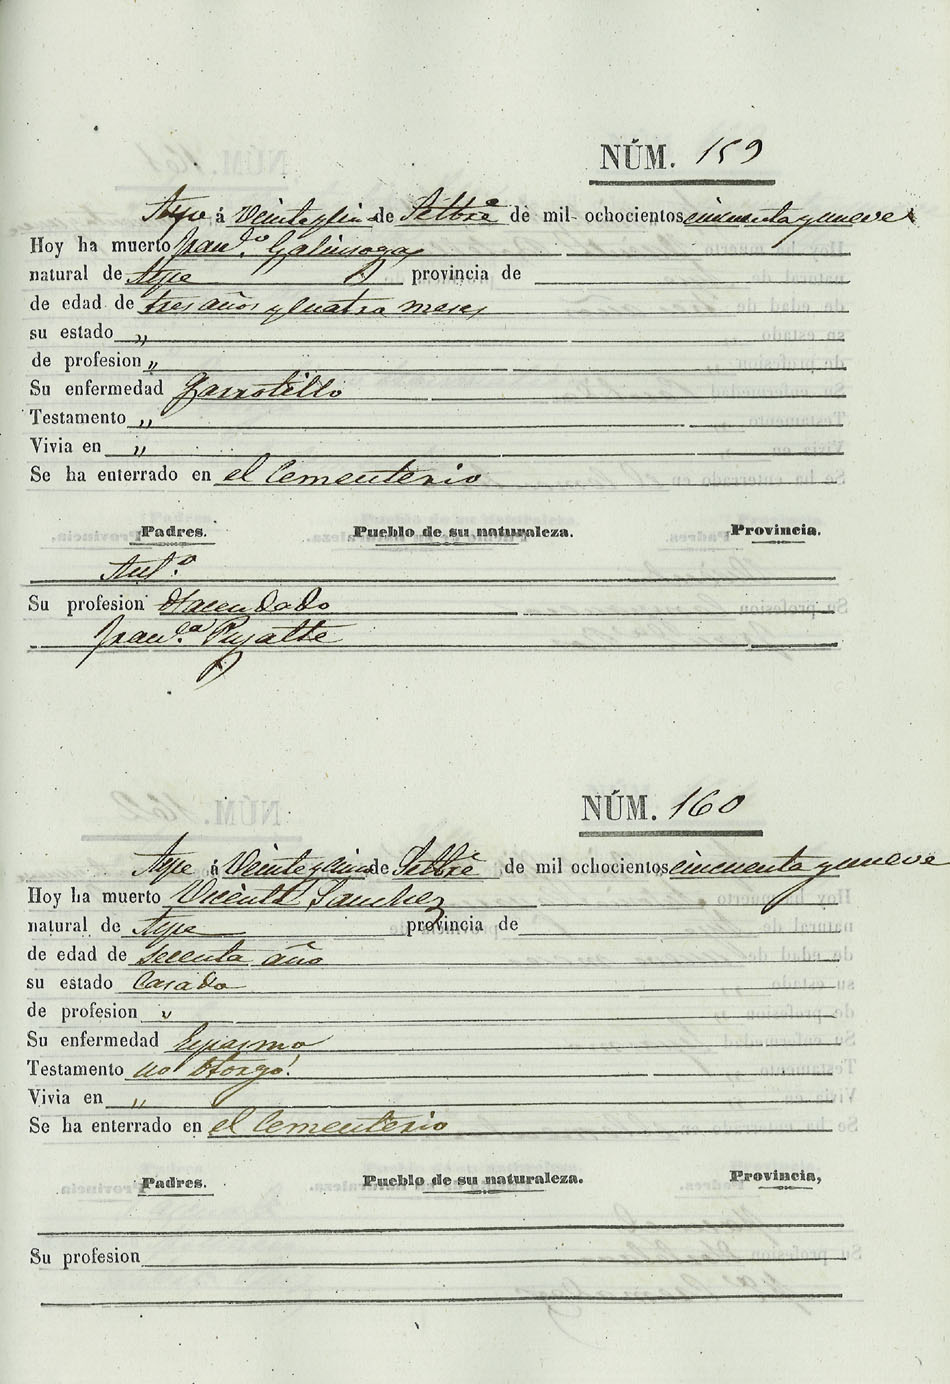 NÚM. 159
Aspe á Veinte y cinco de Setbre de mil ochocientos cincuenta y nueve
Hoy ha muerto Franco. Galinsoga
natural de Aspe provincia de
de edad de tres años y cuatro meses
su estado „
de profesion „
Su enfermedad Garrotillo
Testamento „
Vivia en „
Se ha enterrado en el Cementerio
Padres. Pueblo de su naturaleza. Provincia.
Anto.
Su profesion Hacendado
Franca. Pujalte
NÚM. 160
Aspe á Veinte y cinco de Setbre de mil ochocientos cincuenta y nueve
Hoy ha muerto Vicente Sanchez
natural de Aspe provincia de
de edad de año
su estado Casado
de profesion „
Su enfermedad Espasmo
Testamento no otorgó.
Vivia en „
Se ha enterrado en el Cementerio
Padres. Pueblo de su naturaleza. Provincia,
Su profesion